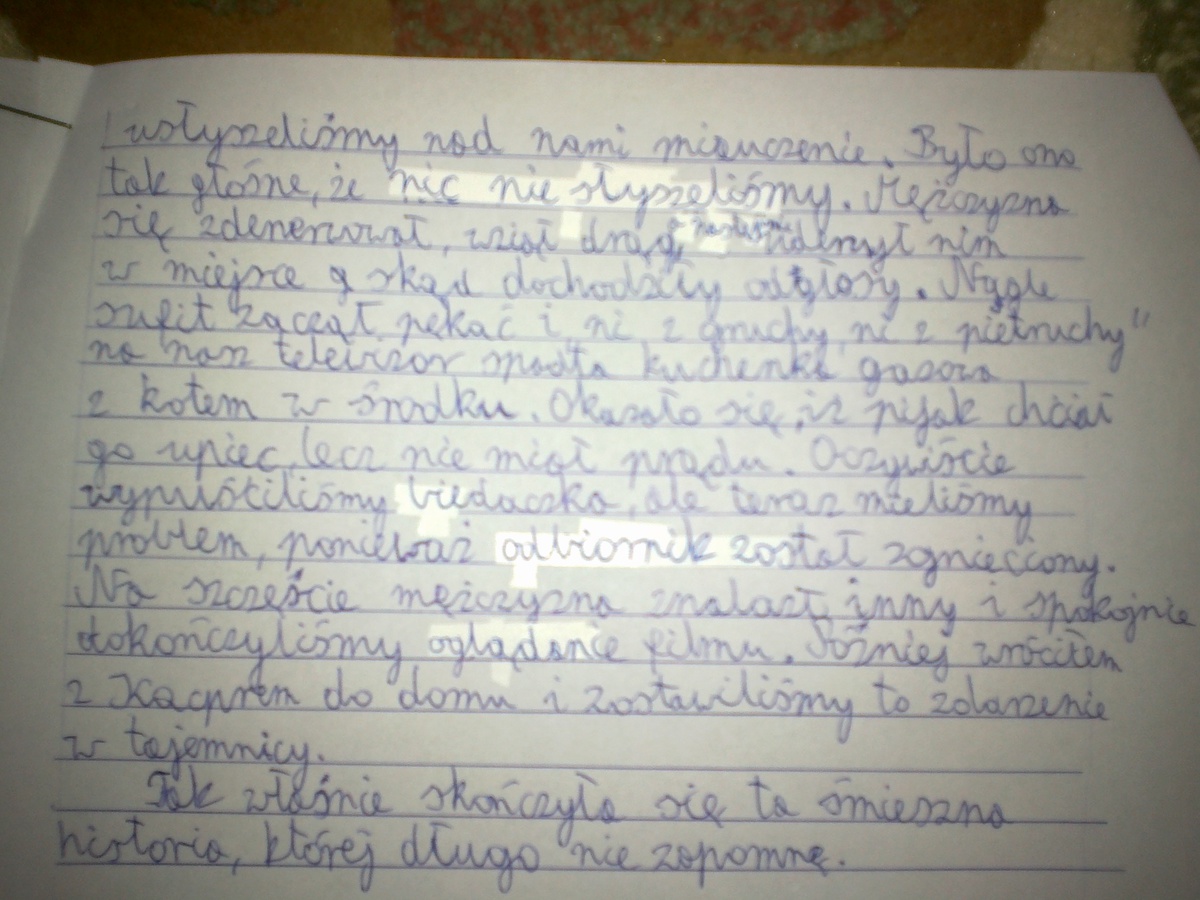 usłyszeliśmy nad nami miauczenie. Było ono
tak głośne, że nic nie słyszeliśmy. Mężczyzna
się zdenerwował, wziął drąg, następnie uderzył nim
w miejsce skąd dochodziły odgłosy. Nagle
sufit zaczął pękać i ni z gruchy, ni z pietruchy"
na nasz telewizor spadła kuchenka gazowa
z kotem w środku. Okazało się, iż pijak chciał
go upiec, lecz nie miał prądu. Oczywiście
wypuściliśmy biedaczka, ale teraz mieliśmy
problem, ponieważ odbiornik został zgnieciony.
Na szczęście mężczyzna znalazł inny i spokojnie
dokończyliśmy oglądanie filmu. Później wróciłem
z Kacprem do domu i zostawiliśmy to zdarzenie
w tajemnicy.
Tak właśnie skończyła się ta śmieszna
historia, której długo nie zapomnę.